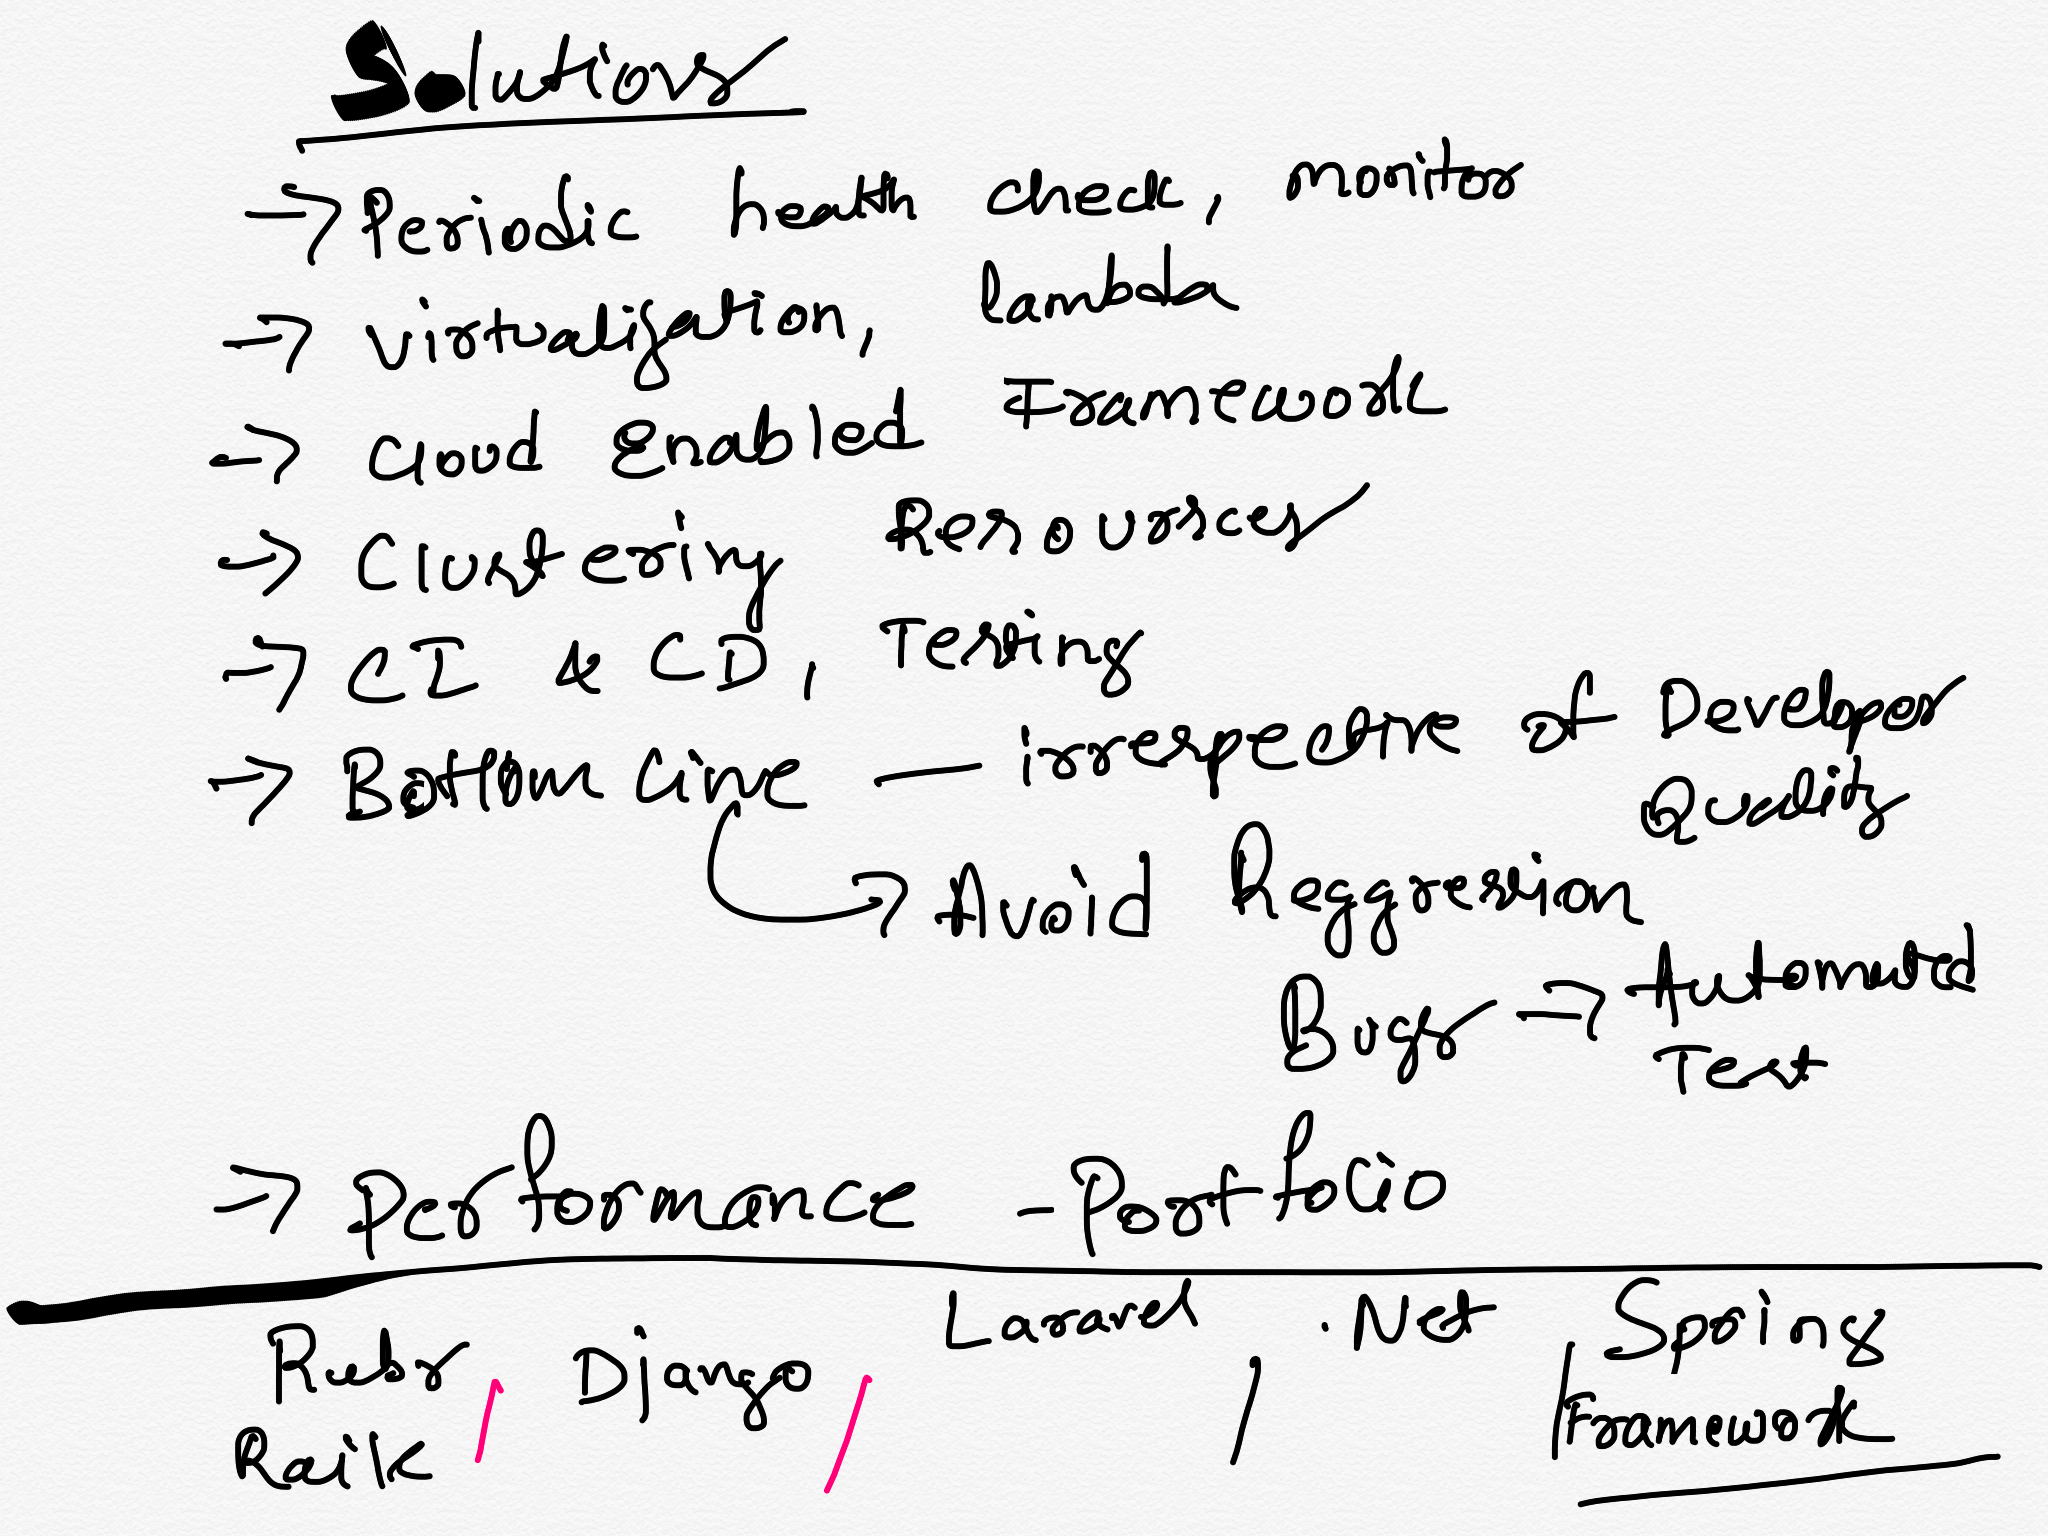 Solutions
→ Periodic health check, monitor
→ virtualization, lambda
→ Cloud Enabled Framework
→ Clustering Resources
→ CI & CD, Testing
→ Bottom Line — irrespective of Developer
Quality
→ Avoid Reggression
Bugs → Automated
Test
→ Performance - Portfolio
Ruby / Django / Laravel / .Net / Spring
Raik Framework